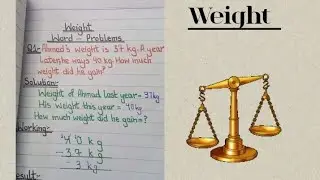 Weight
Word - Problems
Q1: Ahmad's weight is 37 kg. A year
Later, he ways 40 kg. How much
weight did he gain?
Solution:
Weight of Ahmad last year = 37kg
His weight this year = 40kg
How much weight did he gain=?
Working:
40 kg
- 37 kg
3 kg
Result:-
Weight